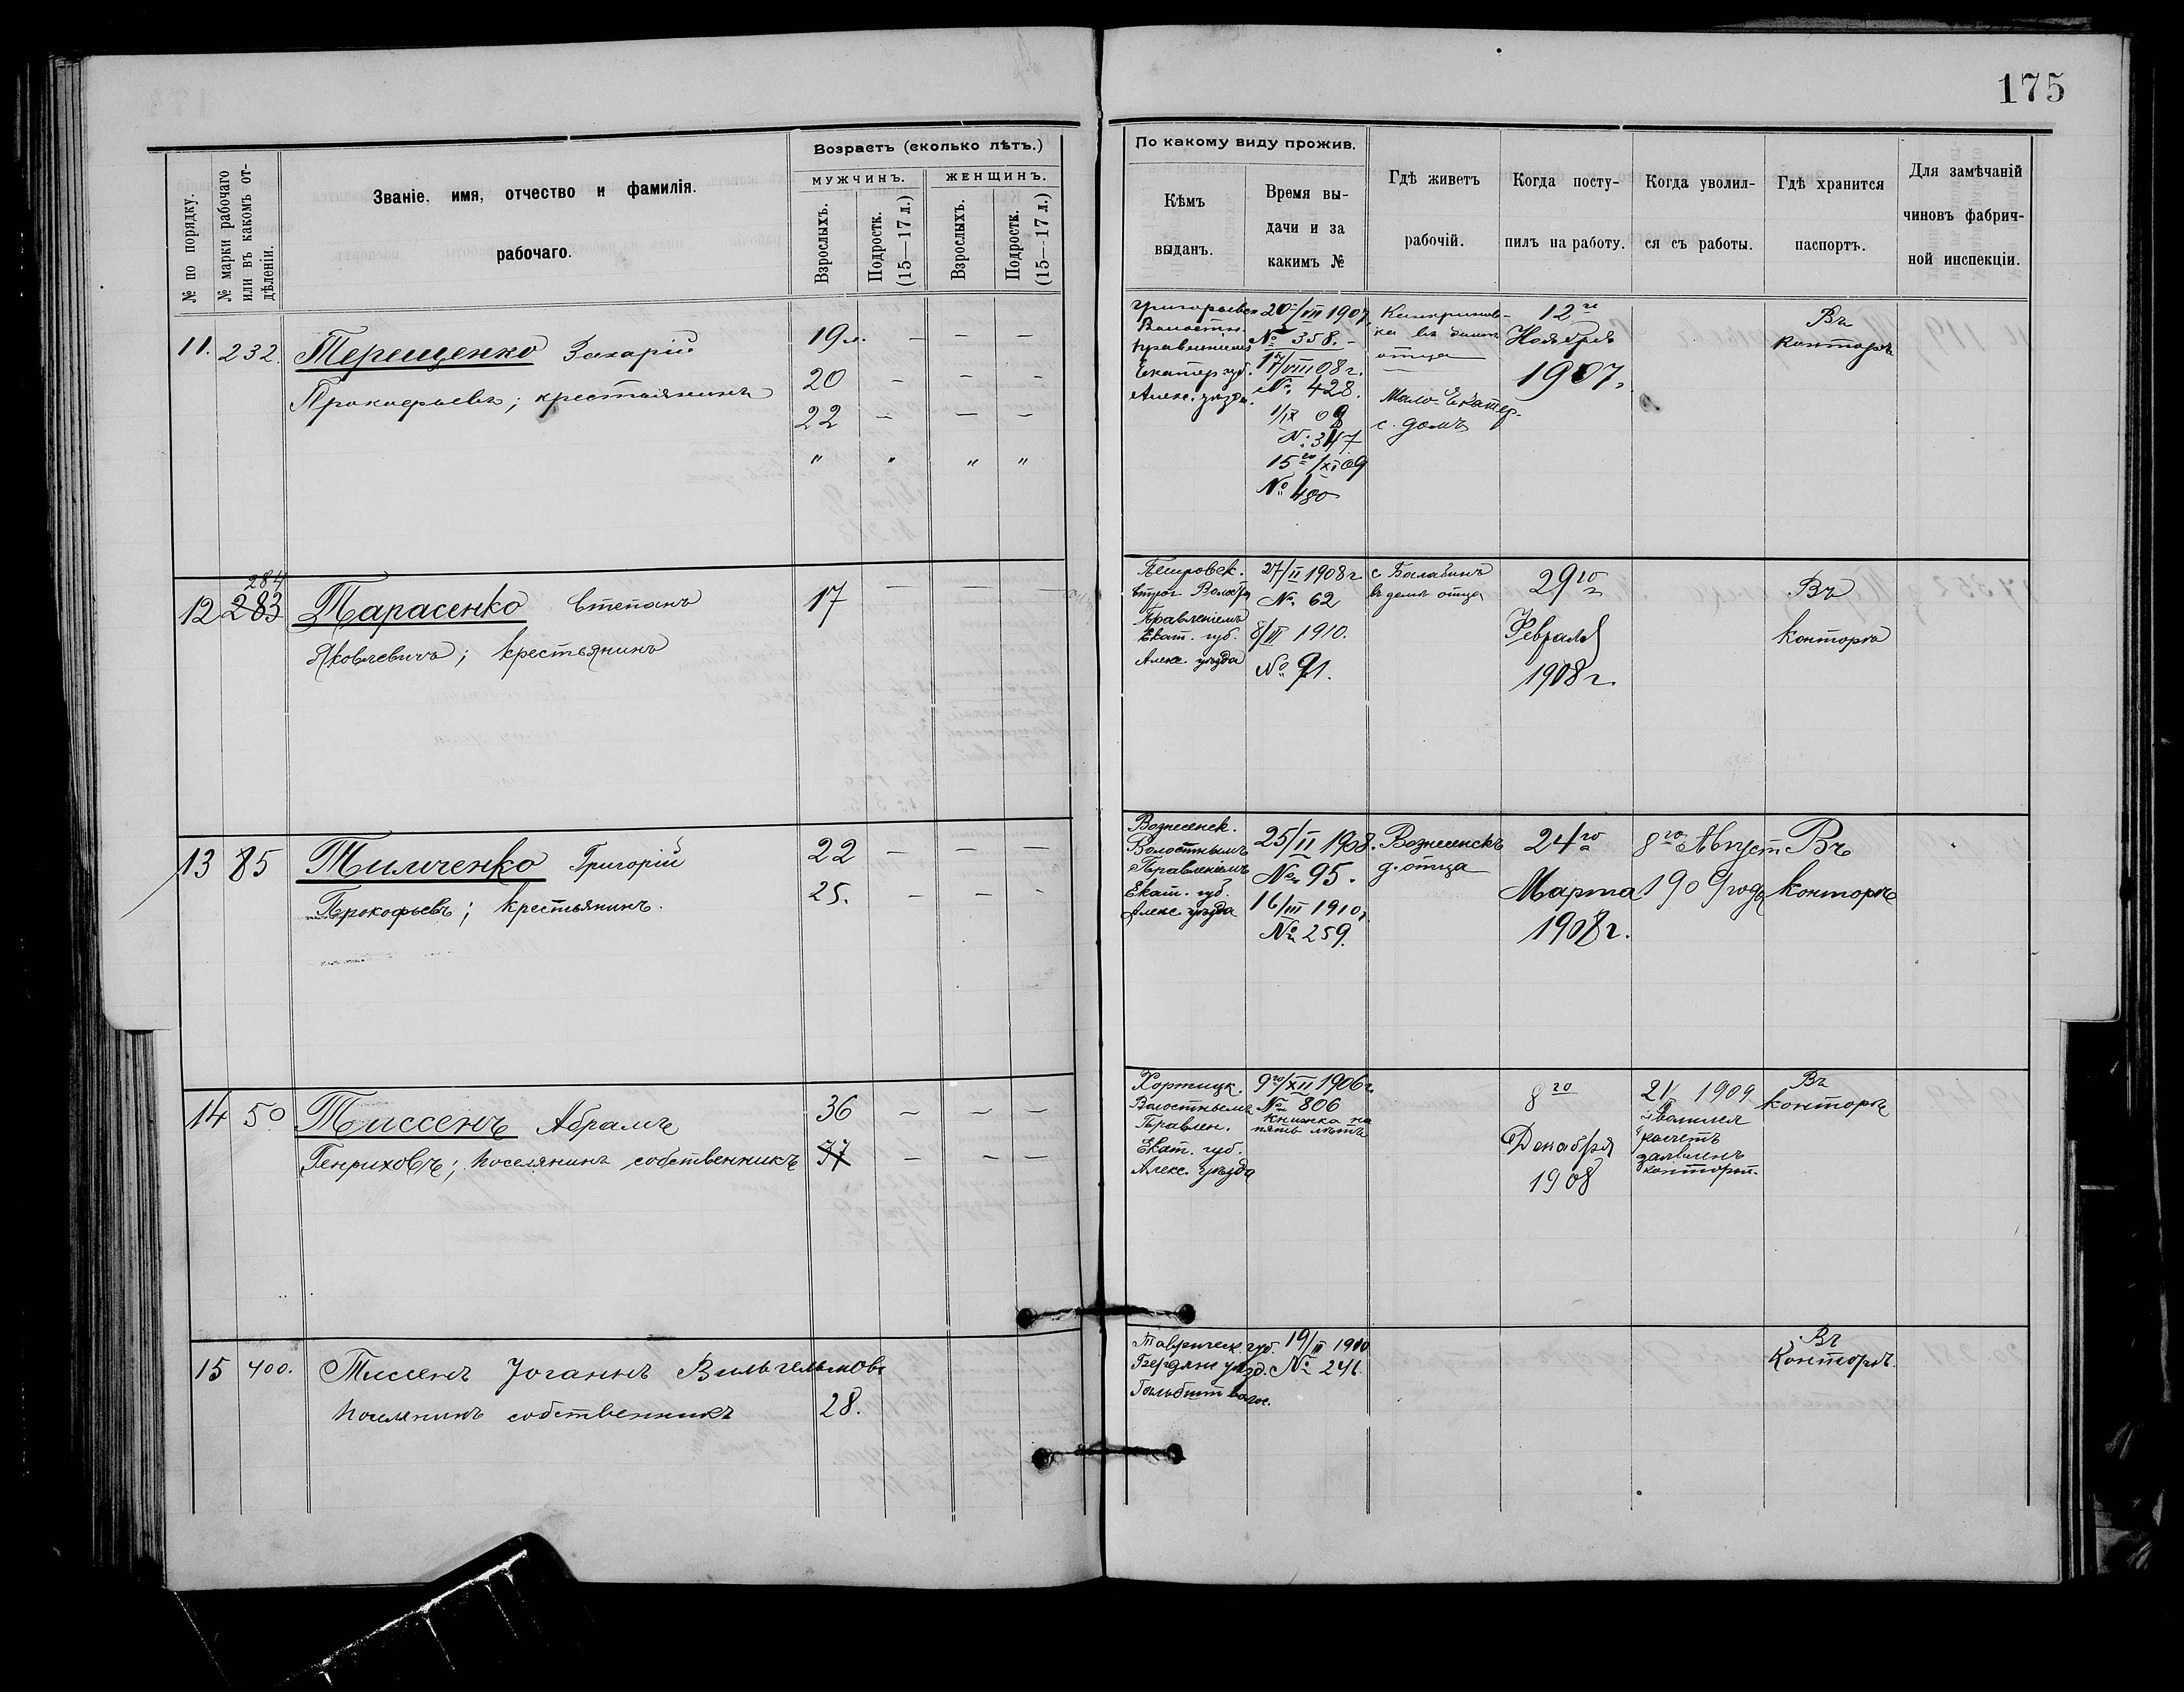 175
Возрастъ (сколько лѣтъ.)
МУЖЧИНЪ. ЖЕНЩИНЪ.
№ по порядку.
№ марки рабочаго
или въ какомъ от-
дѣленіи.
Званіе, имя, отчество и фамилія.
рабочаго.
Взрослыхъ.
Подростк.
(15—17 л.)
Взрослыхъ.
Подростк.
(15—17 л.)
По какому виду прожив.
Кѣмъ
выданъ.
Время вы-
дачи и за
какимъ №
Гдѣ живетъ
рабочій.
Когда посту-
пилъ на работу.
Когда уволил-
ся съ работы.
Гдѣ хранится
паспортъ.
Для замѣчаній
чиновъ фабрич-
ной инспекціи.
11. 232. Терещенко Захарій 19 л. — — —
Прокофьевъ; крестьянинъ 20 — — —
22 — — —
" " " "
Григорьевск
Волостн.
правленіемъ
Екатер. губ.
Алекс. уѣзда.
20/VII 1907
№ 358.
17/VIII 08 г.
№ 428.
1/IX 09
№ 347
15го/XI 09
№ 480
Канкринов-
ка въ домѣ
отца
Мало-Екатер.
с. домъ
12го
Ноября
1907.
Въ
конторѣ
284
12 283 Тарасенко Степанъ 17 — — —
Яковлевичъ; крестьянинъ
Петровск.
Волостн
Правленіемъ
Екат. губ.
Алекс. уѣзда
27/II 1908 г
№ 62
8/III 1910.
№ 91.
с Балабино
въ домѣ отца
29го
Февраля
1908 г.
Въ
конторѣ
13 85 Тимченко Григорій 22 — — —
Прокофьевъ; крестьянинъ. 25. — — —
Вознесенск.
Волостнымъ
Правленіемъ
Екат. губ.
Алекс уѣзда
25/II 1908.
№ 95.
16/III 1910 г.
№ 259.
Вознесенскъ
д. отца
24го
Марта
1908 г.
8го Август
1909 года
Въ
конторѣ
14 50 Тиссенъ Абрамъ 36 — — —
Генриховъ; поселянинъ собственникъ 37 — — —
Хортицк.
Волостнымъ
Правлен.
Екат. губ.
Алекс. уѣзда
9го/XII 1906 г.
№ 806
книжка на
пять лѣтъ
8го
Декабря
1908
1909
расчетъ
заявленъ
Въ
конторѣ
15 400. Тиссенъ Іоганнъ Вильгельмовъ
поселянинъ собственникъ 28.
Таврическ. губ.
Бердянс уѣзд.
19/II 1910
№ 241.
Въ
Конторѣ.